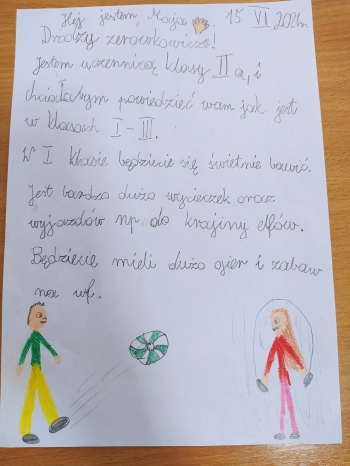 Hej jestem Maja 15 VI 2021r.
Drodzy zerówkowicze!
Jestem uczennicą klasy II a, i
chciałabym powiedzieć wam jak jest
w klasach I-III.
W I klasie będziecie się świetnie bawić.
Jest bardzo dużo wycieczek oraz
wyjazdów np do krainy elfów.
Będziecie mieli dużo gier i zabaw
na wf.